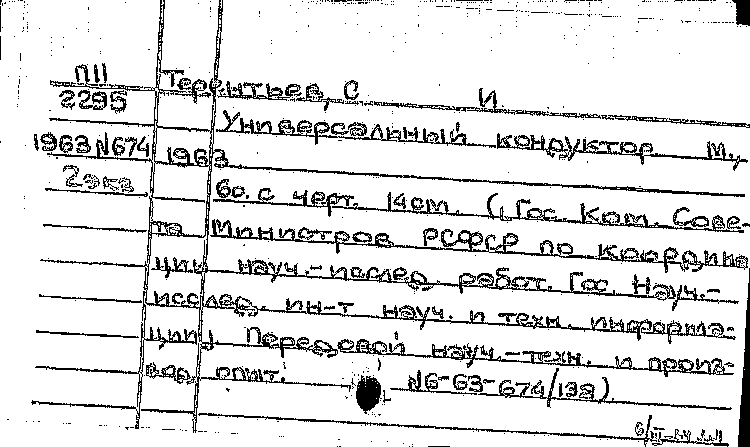 П11 Терентьев, С И
2295
Универсальный кондуктор М.,
1963 N674 1963.
2экз 6с. с черт. 14см. (Гос. Ком. Сове-
та Министров РСФСР по координа
ции науч.-исслед. работ. Гос. Науч.-
исслед. ин-т науч. и техн. информа-
ции) Передовой науч.-техн. и произ-
вод. опыт. N6-63-674/138)